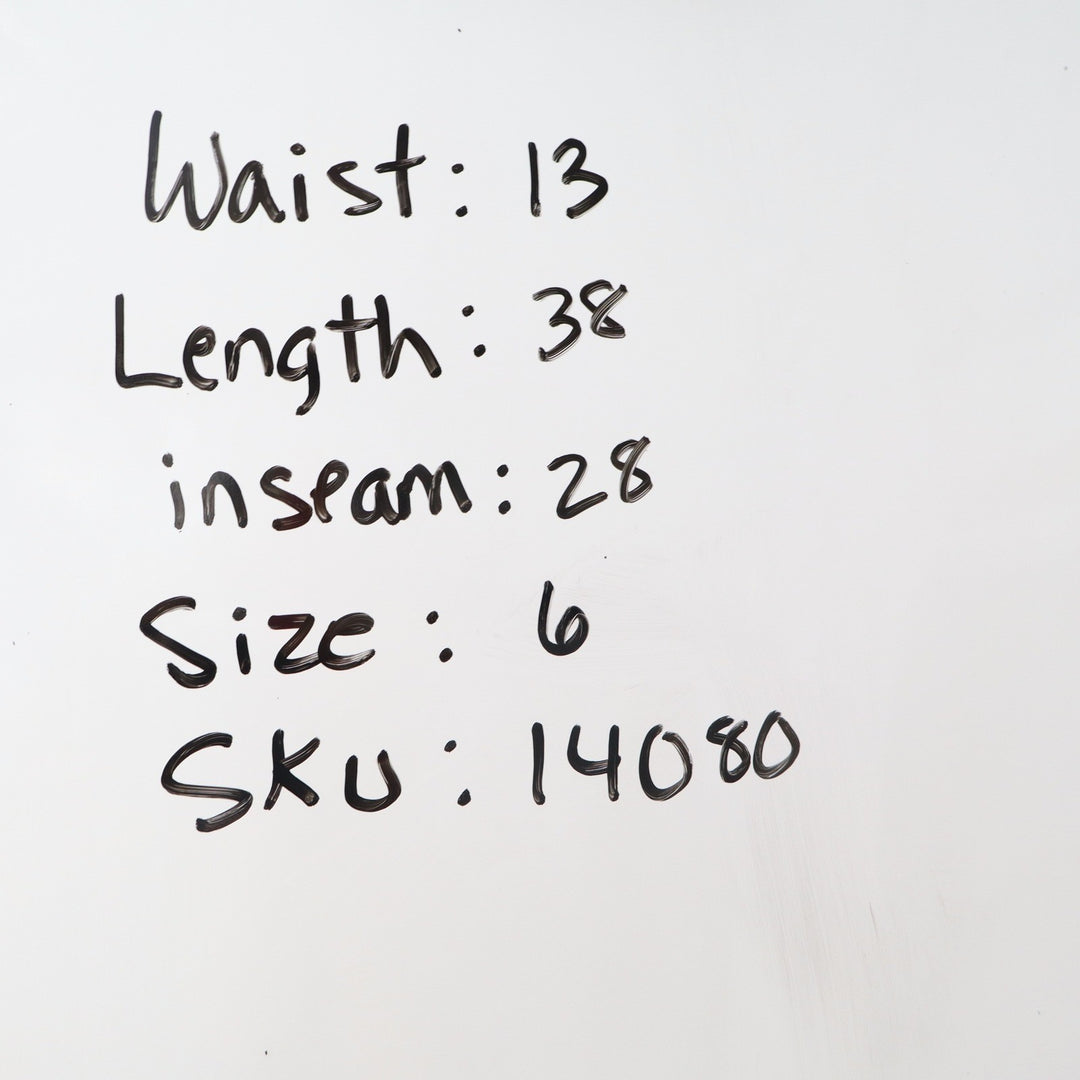 Waist: 13
Length: 38
inseam: 28
Size: 6
SKU: 14080